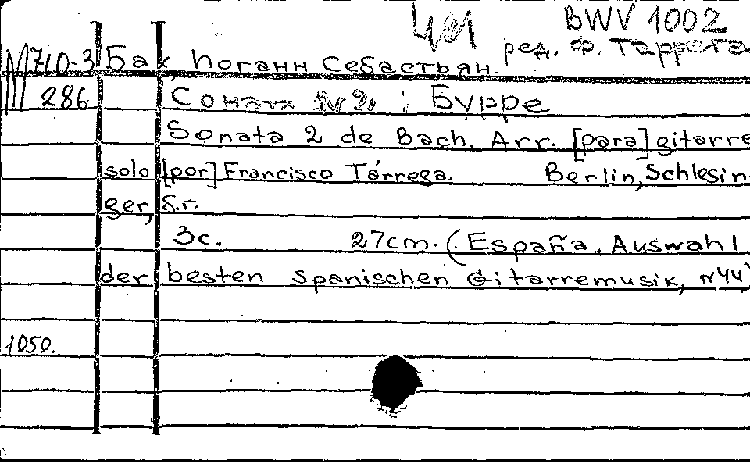 BWV 1002
ред. Ф. Таррега
М 710-3 Бах Иоганн Себастьян.
286 Соната №2. : Бурре
Sonata 2 de Bach. Arr. [para] gitarre
solo [por] Francisco Tárrega. Berlin, Schlesin-
ger, s.r.
3c. 27cm. (España. Auswahl
der besten spanischen Gitarremusik, N44)
1050.